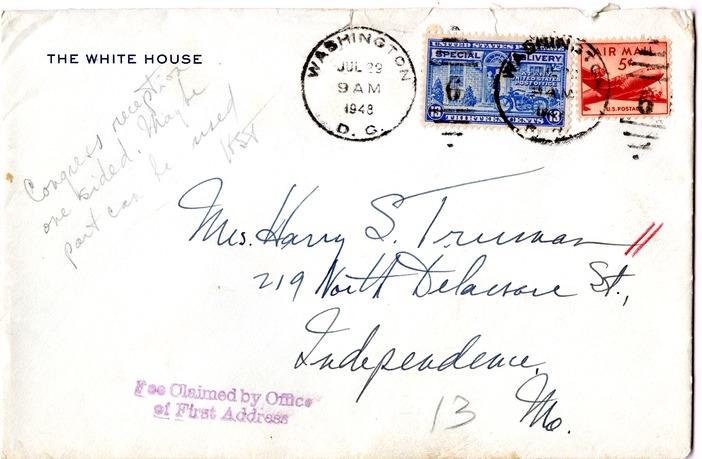 THE WHITE HOUSE
Congress reception
one sided. Maybe
part can be used
HST
WASHINGTON
JUL 29
9 AM
1948
D. C.
UNITED STATES POSTAGE
SPECIAL DELIVERY
AT ANY
UNITED STATES
POST OFFICE
13 13
THIRTEEN CENTS
WASHINGTON
AIR MAIL
5¢
U.S. POSTAGE
Mrs. Harry S. Truman
219 North Delaware St.,
Independence,
Mo.
13
Fee Claimed by Office
of First Address